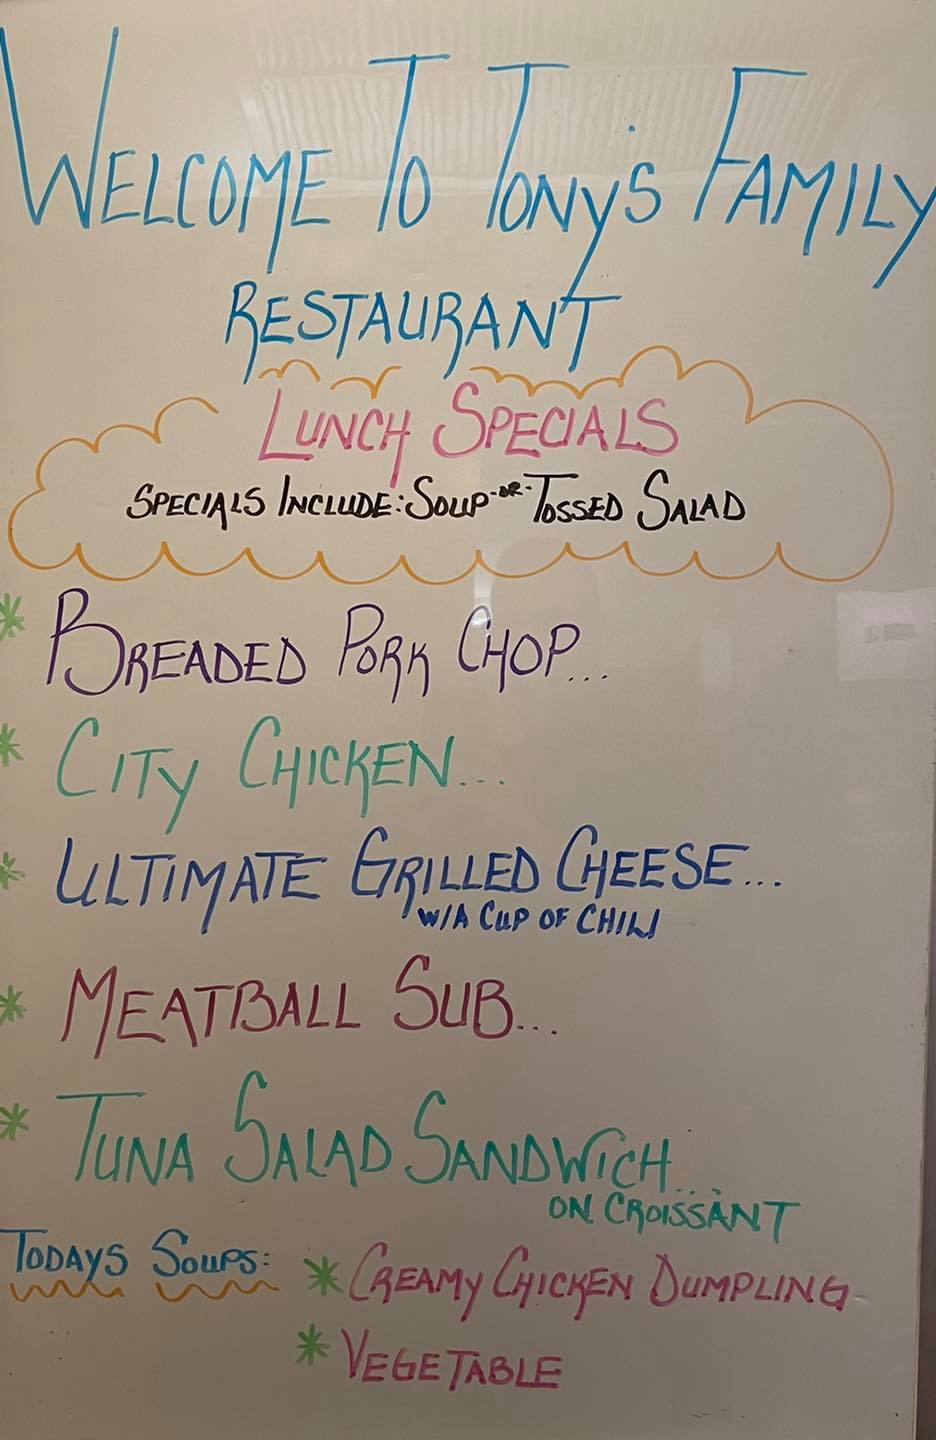 WELCOME TO TONY'S FAMILY
RESTAURANT
LUNCH SPECIALS
SPECIALS INCLUDE: SOUP -OR- TOSSED SALAD
* BREADED PORK CHOP...
* CITY CHICKEN...
* ULTIMATE GRILLED CHEESE...
W/A CUP OF CHILI
* MEATBALL SUB...
* TUNA SALAD SANDWICH...
ON CROISSANT
TODAYS SOUPS: * CREAMY CHICKEN DUMPLING
* VEGETABLE